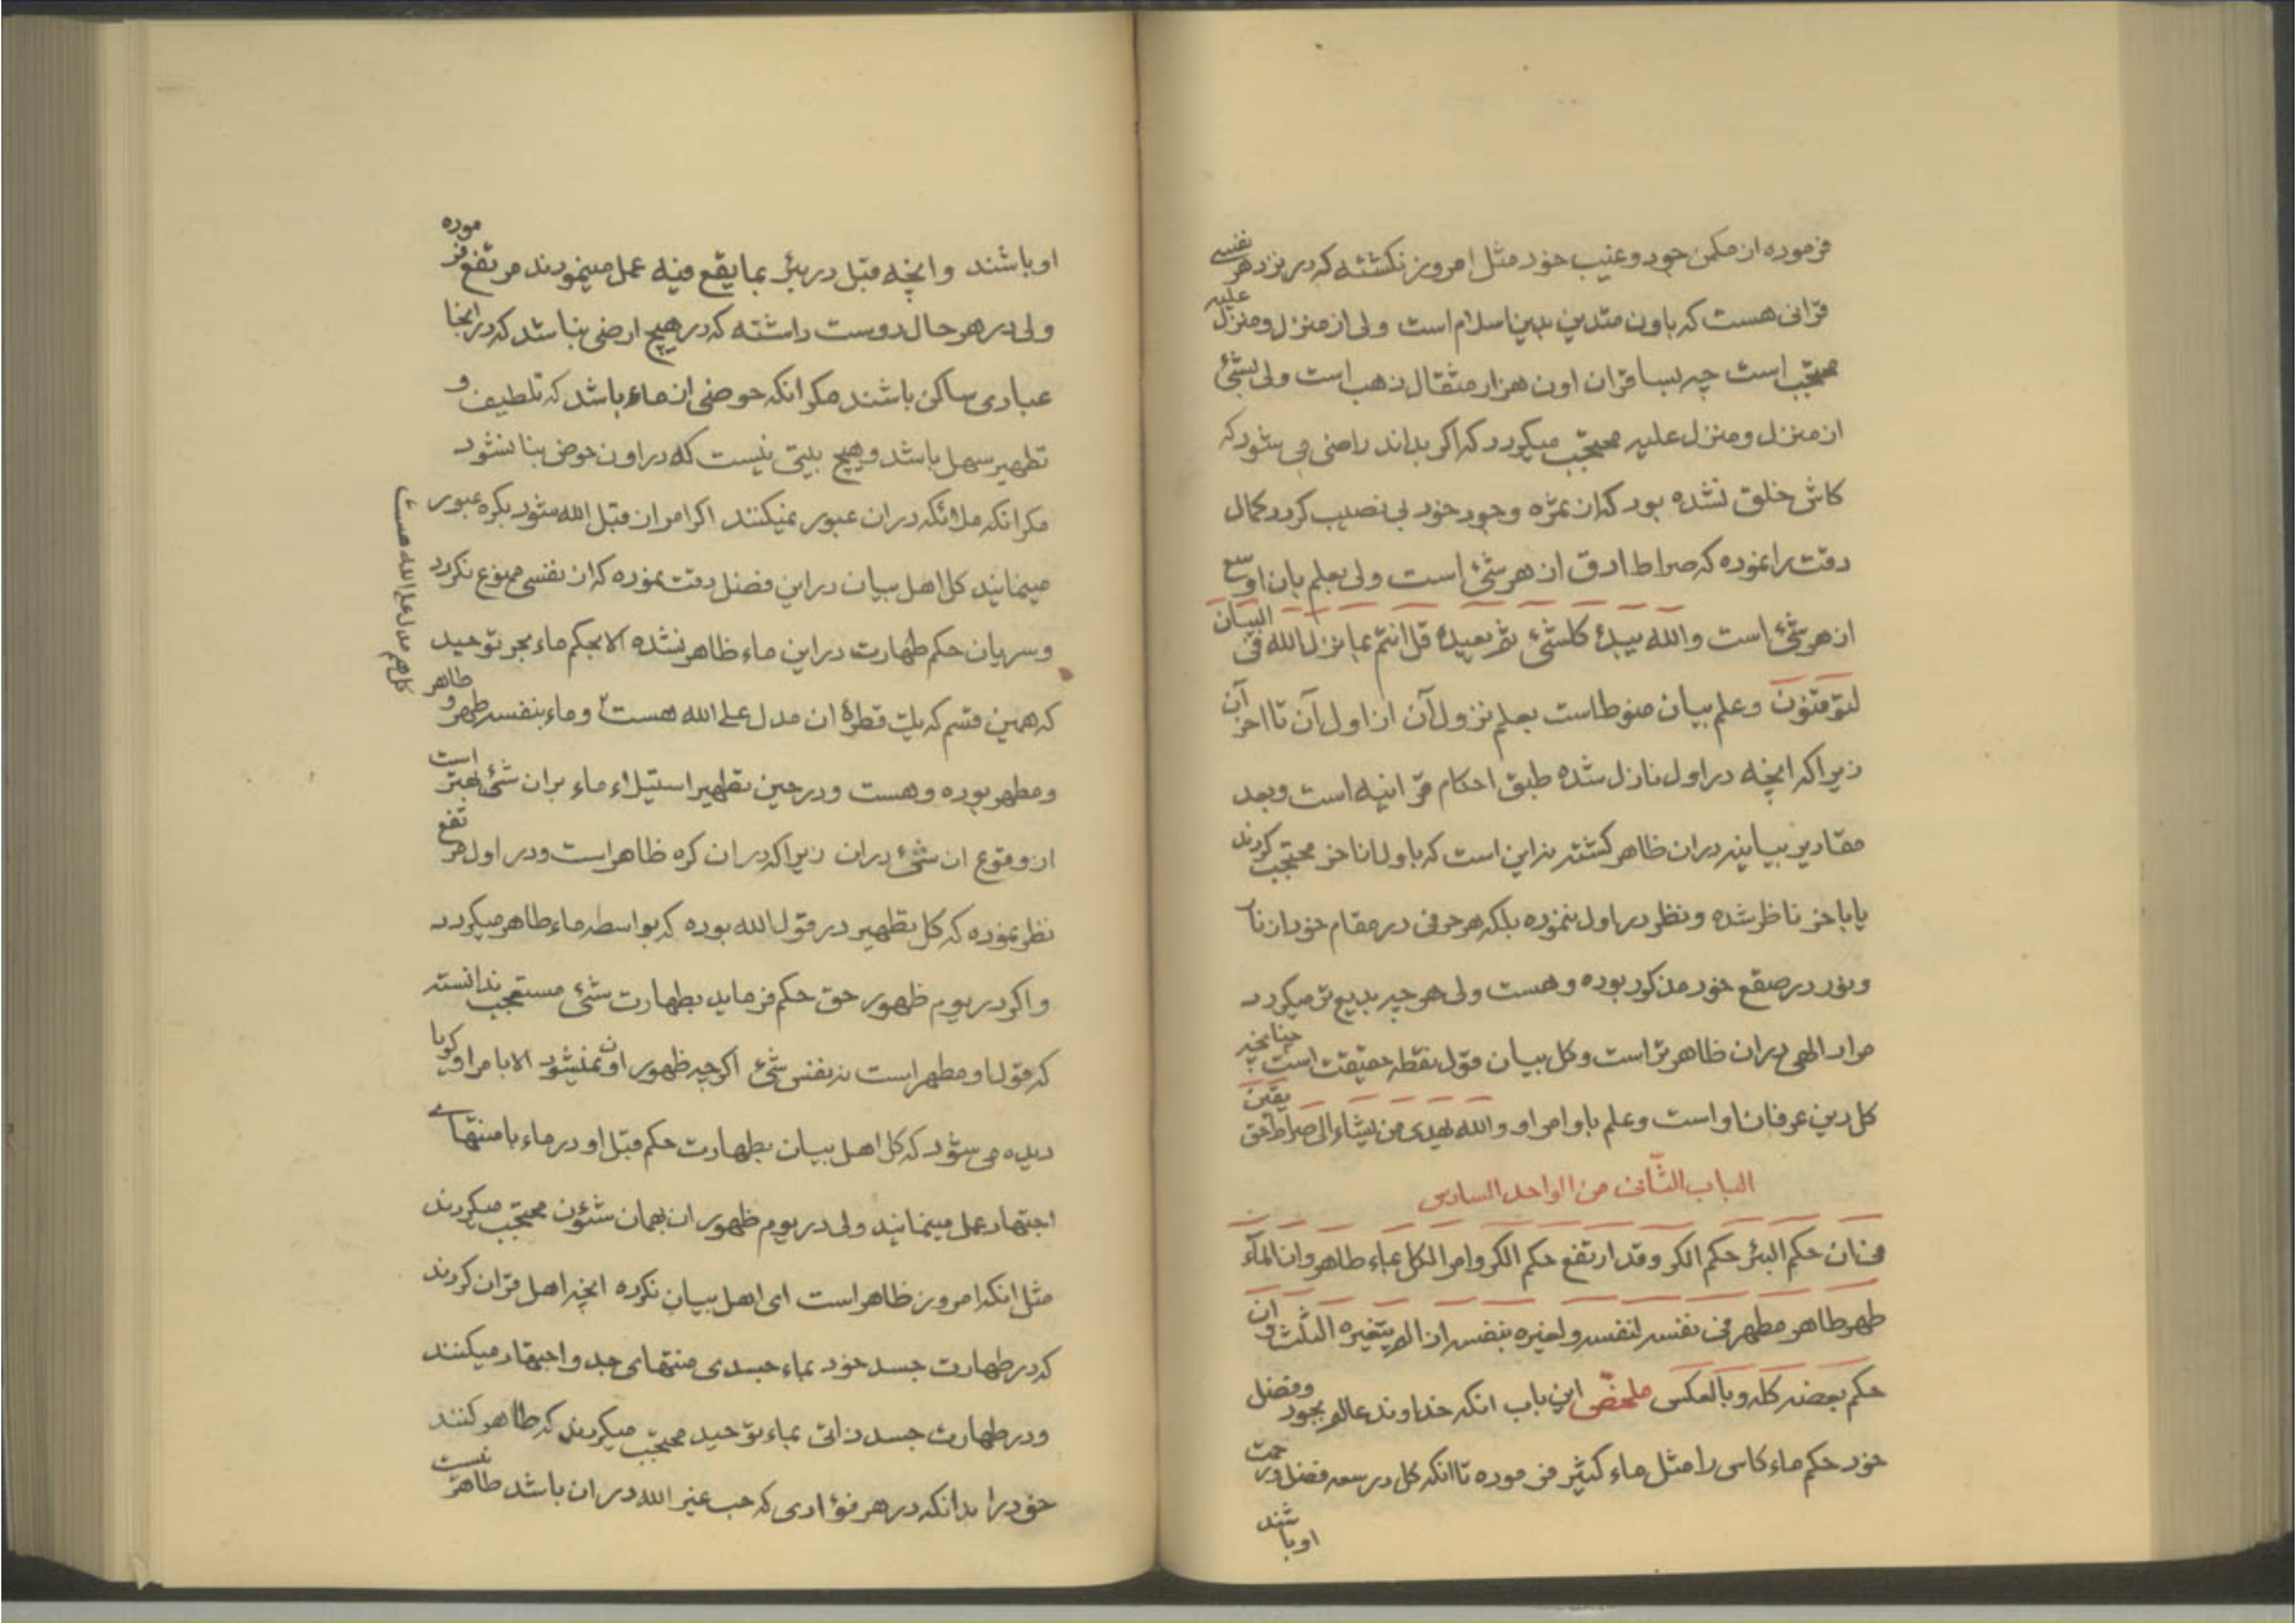 فرموده از مکمن جود و غیب خود مثل امروز نکشته که در نزد هر نفسی
قرانی هست که باون متدین بدین اسلام است ولی از منزل و منزل علیه
محتجب است چه بسا قران اون هزار مثقال ذهب است ولی بشئ
از منزل و منزل علیه محتجب میکردد که اکر بداند راضی می شود که
کاش خلق نشده بود که از ثمره وجود خود بی نصیب کردد کمال
دقت را نموده که صراط ادق از هر شئ است ولی بعلم بان اوسع
از هر شئ است والله یبدئ کلشئ ثم یعیده قل انتم بما نزل الله فی البیان
لتوقنون و علم بیان منوط است بعلم نزول آن از اول آن تا اخر آن
زیرا که انچه در اول نازل شده طبق احکام قرانیه است و بعد
مقادیر بیانیه دران ظاهر کشته نه این است که باول از اخر محتجب کردند
یا باخر ناظر شده و نظر در اول ننموده بلکه هر حرفی در مقام خود از نار
و نور در صقع خود مذکور بوده و هست ولی هر چه بدیع تر میکردد
مراد الهی دران ظاهر تر است و کل بیان قول نقطه حقیقت است چنانچه
کل دین عرفان او است و علم باوامر او والله یهدی من یشاء الی صراط حق یقین
الباب الثانی من الواحد السادس
فی ان حکم البئر حکم الکر و قد ارتفع حکم الکر وامر الکل بماء طاهر وان المآء
طهر طاهر مطهر فی نفسه لنفسه ولغیره بنفسه اذا لم یتغیره الثلث وان
حکم بعضه کله وبالعکس ملخص این باب انکه خداوند عالم بجود و فضل
خود حکم ماء کاس را مثل ماء کثیر فرموده تا انکه کل در سعه فضل و رحمت
او باشند
او باشند و انچه قبل در بئر بما یقع فیه عمل مینمودند مرتفع فرموده
ولی در هر حال دوست داشته که در هیچ ارضی نباشد که در انجا
عبادی ساکن باشند مکر انکه حوضی از ماء باشد که تلطیف و
تطهیر سهل باشد و هیچ بیتی نیست که در اون حوض بنا نشود
مکر انکه ملائکه دران عبور نمیکنند اکر امر از قبل الله شود بکره عبور
مینمایند کل اهل بیان در این فضل دقت نموده که از نفسی ممنوع نکردد
و سریان حکم طهارت در این ماء ظاهر نشده الا بحکم ماء بحر توحید
که همین قسم که یک قطرهٔ ان مدل علی الله هست و ماء بنفسه طهر و طاهر
کل هم مدل علی الله هست
و مطهر بوده و هست و در حین تطهیر استیلاء ماء بران شئ بهتر است
از وقوع ان شئ دران زیرا که دران کره ظاهر است و در اول مرتفع
نظر نموده که کل تطهیر در قول الله بوده که بواسطه ماء طاهر میکردد
و اکر در یوم ظهور حق حکم فرماید بطهارت شئ مستعجب ندانسته
که قول او مطهر است نه نفس شئ اکرچه ظهور اون نمیشود الا بامر او کویا
دیده می شود که کل اهل بیان بطهارت حکم قبل او در ماء با منتهای
اجتهاد عمل مینمایند ولی در یوم ظهور ان بهمان شئون محتجب میکردند
مثل انکه امروز ظاهر است ای اهل بیان نکرده انچه اهل قران کردند
که در طهارت جسد خود بماء جسدی منتهای جد و اجتهاد میکنند
و در طهارت جسد ذاتی بماء توحید محتجب میکردند که طاهر کنند
خود را بدانکه در هر فؤادی که حب غیر الله دران باشد طاهر نیست